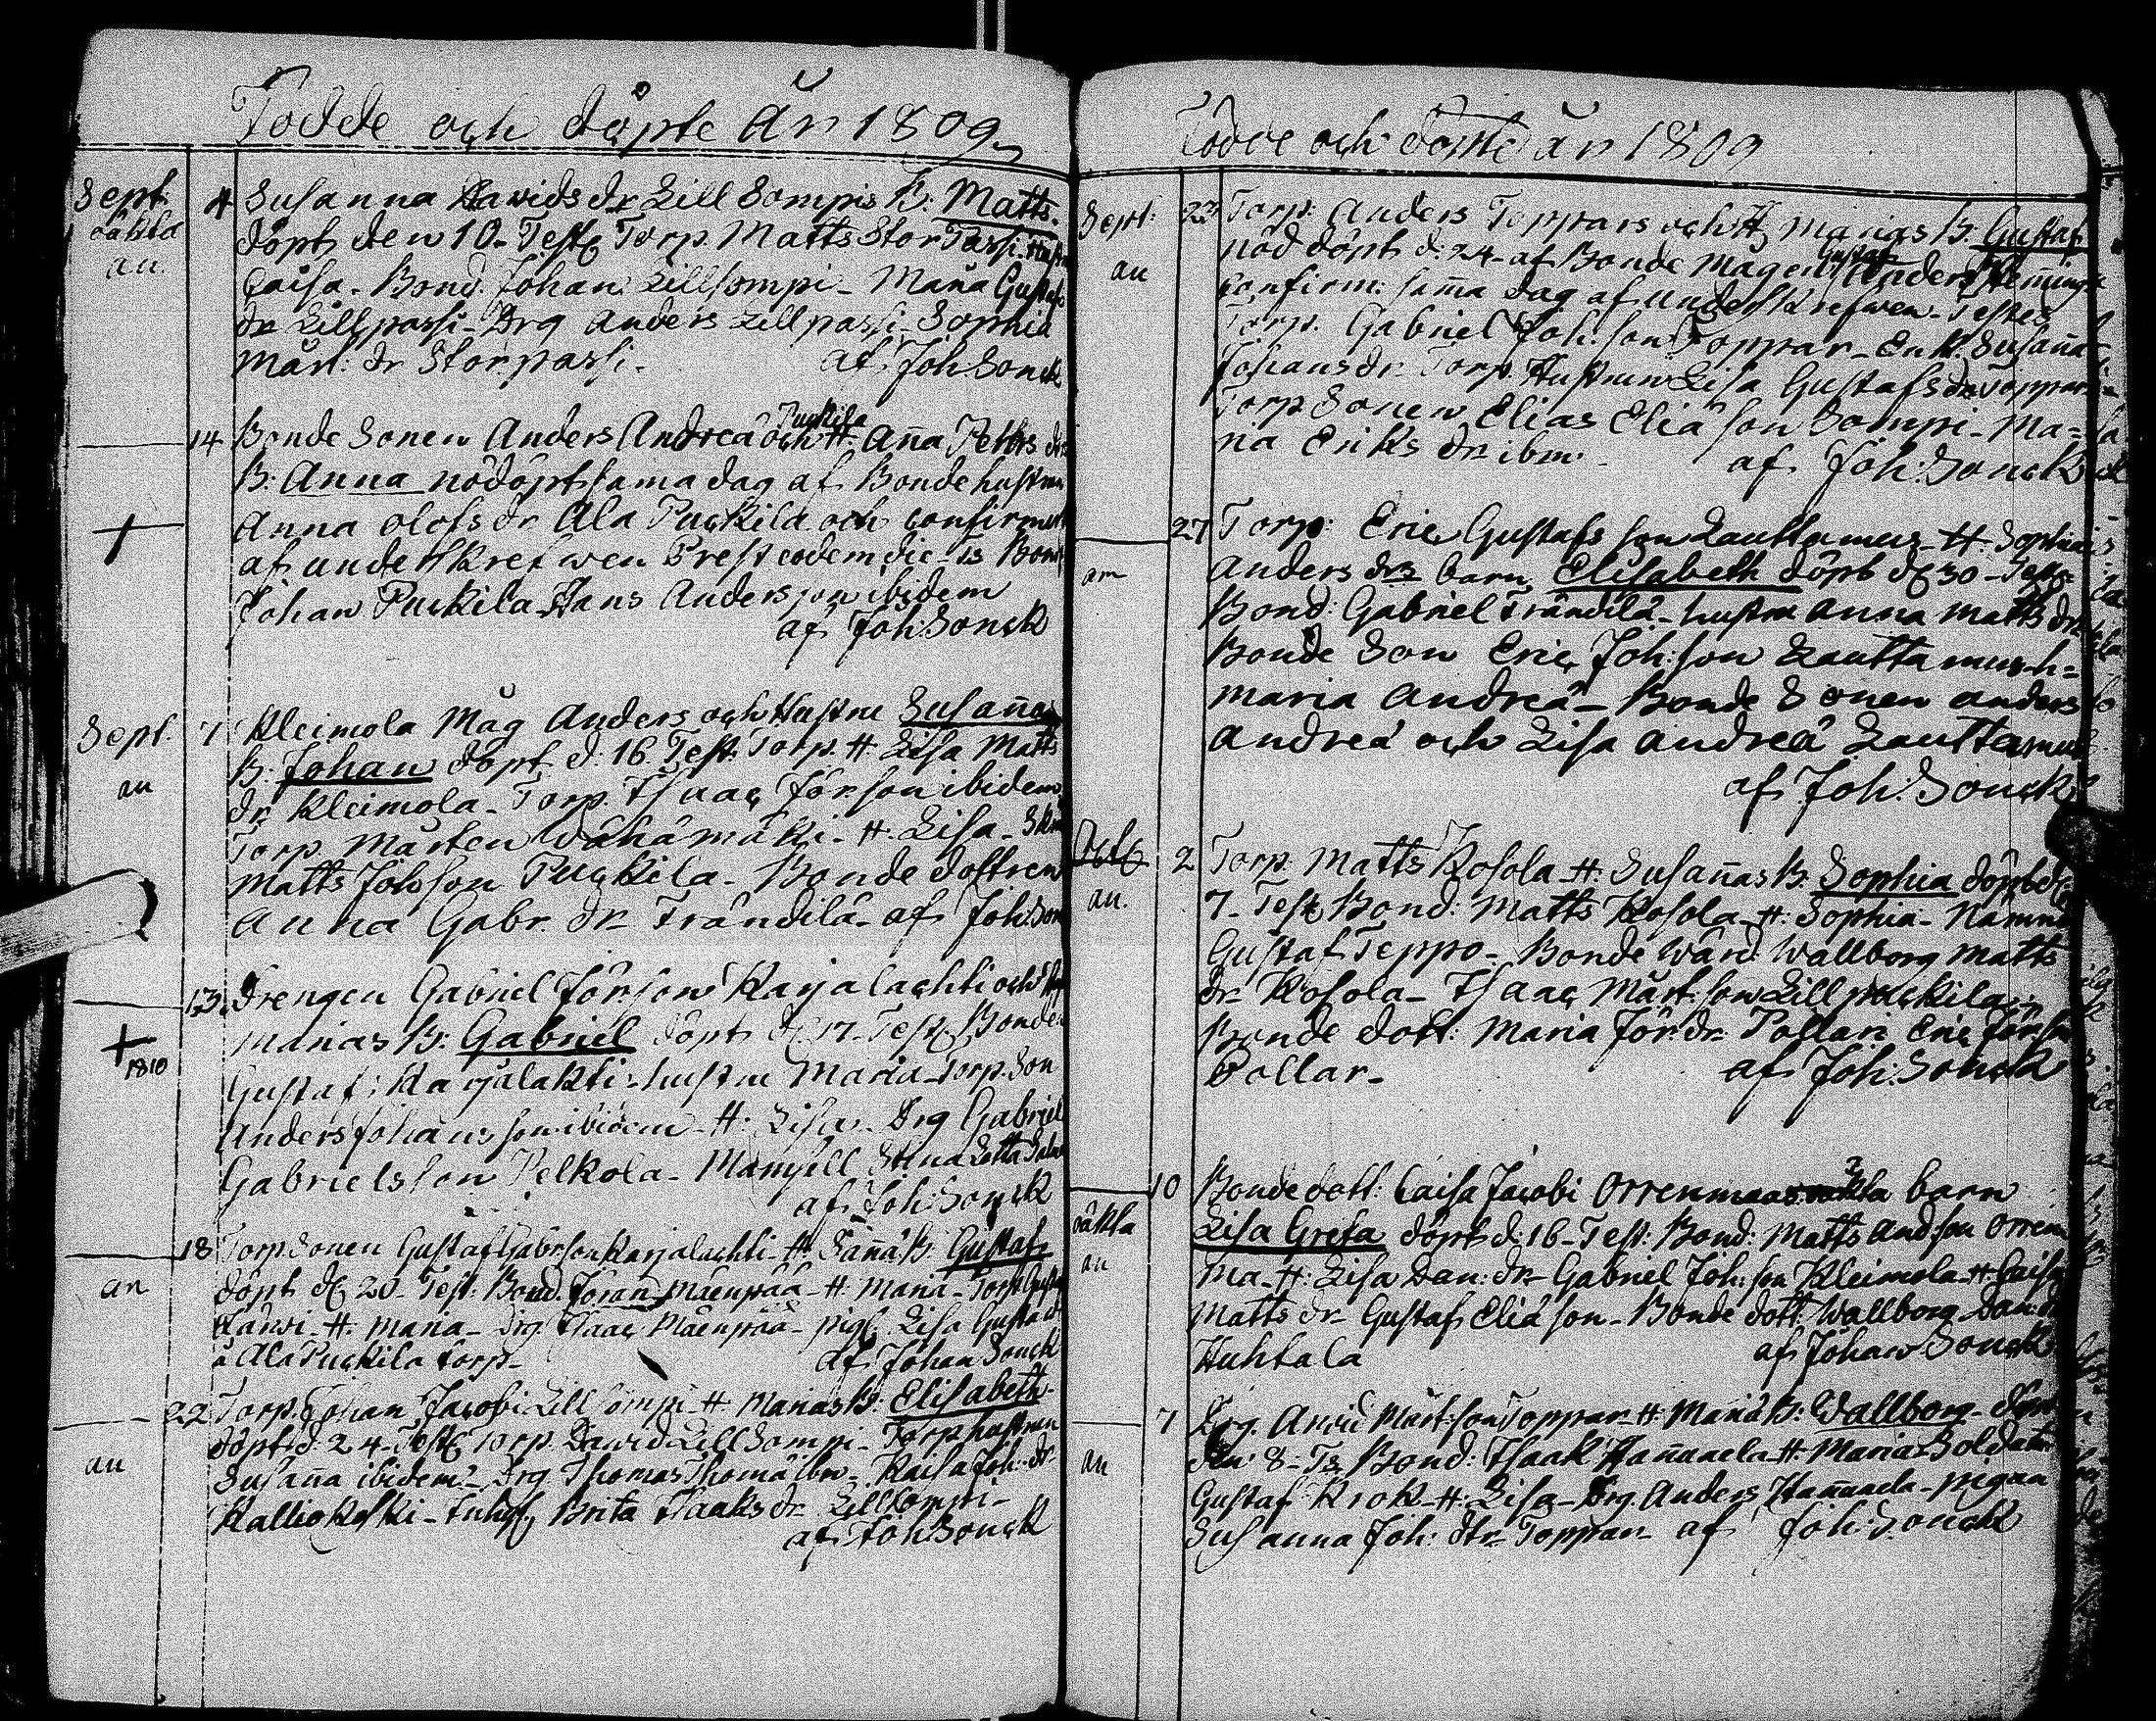 Födde och döpte År 1809
Sept. 4 Susanna Davids dr Lill Sompis B: Matts.
oäkta döpt den 10. Test: Torp. Matts Stor Passi. Hustru
an. Caisa. Bond. Johan Lillsompi. Maria Gustafs
dr Lillpassi. Drg Anders Lillpassi. Sophia
Mårt: dr Storpassi. af Joh Sonck
14 Bonde Sonen Anders Andreä Puckila och H: Aña Petters drs
B: Anna nödöpt sama dag af Bonde hustrun
Anna Olofs dr Ala Puckila och confirmerat
af underskrefwen Prest eodem die. Ts Bond
Johan Puckila. Hans Andersson ibidem
af Joh: Sonck
Sept. 7 Kleimola Måg Anders och Hustru Susañas
an B: Johan döpt d. 16. Test: Torp. H: Lisa Matts
dr Kleimola. Torp. Isaac Jörson ibidem
Torp Mårten Wähämäki. H: Lisa.
Matts Johsson Puckila. Bonde dottren
Anna Gabr. dr Trändilä. af Joh: Son
13. Drengen Gabriel Jörson Karjalachti och
1810 Marias B: Gabriel döpt d. 17. Test: Bonde
Gustaf Karjalakti. hustru Maria. Torp. Son
Anders Johansson ibidem. H: Lisa. Drg Gabriel
Gabrielsson Pelkola. Mamsell Stina Lotta
af Joh: Sonck
18 Torp Sonen Gustaf Gabrson Karjalachti. H: Sañas B: Gustaf
an döpt d. 20. Test: Bond. Johan Mäenpää. H: Maria. Torp Gustaf
Järwi. H: Maria. Drg. Isaac Mäenpää. pig: Lisa Gustafs dr
å Ala Puckila torp. af Johan Sonck
22 Torp. Johan Jacobi Lill sompi H: Marias B: Elisabeth
döpt d. 24. Test: Torp. David Lill Sompi. Torp hustrun
an Susaña ibidem. Drg. Thomas Thomä ibm. Kaisa Joh: dr
Kalliokoski. Brita Isaaks dr Lillsompi.
af Joh Sonck
Födde och döpte År 1809
Sept: 23 Torp: Anders Toppars och H: Marias B: Gustaf
an nöddöpt d. 24. af Bonde Magen Gustaf Anders Flemming
confirm: sama dag af underskrefwen. Testes
Torp. Gabriel Joh: son Toppar. Enk. Susaña
Johansdr. Torp. Hustrun Lisa Gustafs dr Toppar
Torp Sonen Elias Eliä son Sompi. Ma=
ria Eriks dr ibm. af Joh: Sonck
27 Torp: Eric Gustafs son Lauttamus. H: Sophia
an Anders drs barn Elisabeth döpt d. 30. Test:
Bond: Gabriel Trändilä. hustru Anna Matts dr
Bonde Son Eric Joh: son Lauttamus. h=
Maria Andreä. Bonde Sonen Anders
Andreä och Lisa Andreä Lauttamus
af Joh: Sonck
Octb 2 Torp: Matts Kosola H: Susañas B: Sophia döpt d.
an. 7. Test Bond: Matts Kosola. H: Sophia. Nämnd
Gustaf Teppo. Bonde Wärd: Wallborg Matts
dr Kosola. Isaac Mårt: son Lill puckila.
Bonde dott: Maria Jör: dr. Pollari Eric Jörson
Pollar. af Joh: Sonck
10 Bonde dott: Caisa Jacobi Orrenmaa oäkta barn
oäkta Lisa Greta döpt d: 16. Test: Bond: Matts And son Orren
an Ma. H: Lisa Dan: dr. Gabriel Joh: son Kleimola H: Caisa
Matts dr. Gustaf Eliä son. Bonde dott: Wallborg Dan: dr
Huhtala af Johan Sonck
7 Drg. Arvid Mårt: son Toppar H: Maria B: Wallborg. döpt
an den 8. Ts Bond: Isaak Hañuaela H: Maria. Soldat
Gustaf Krok. H: Lisa. Drg. Anders Hañuaela. pigan
Susanna Joh: dtr Toppar. af Joh: Sonck